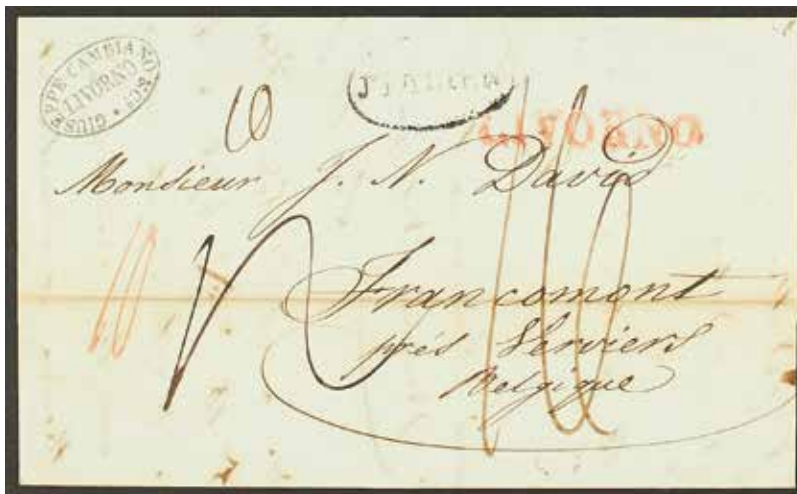 GIUSEPPE CAMBIANO & Co.
LIVORNO
LIVORNO
Monsieur J. N. David
Francomont
près Verviers
Belgique